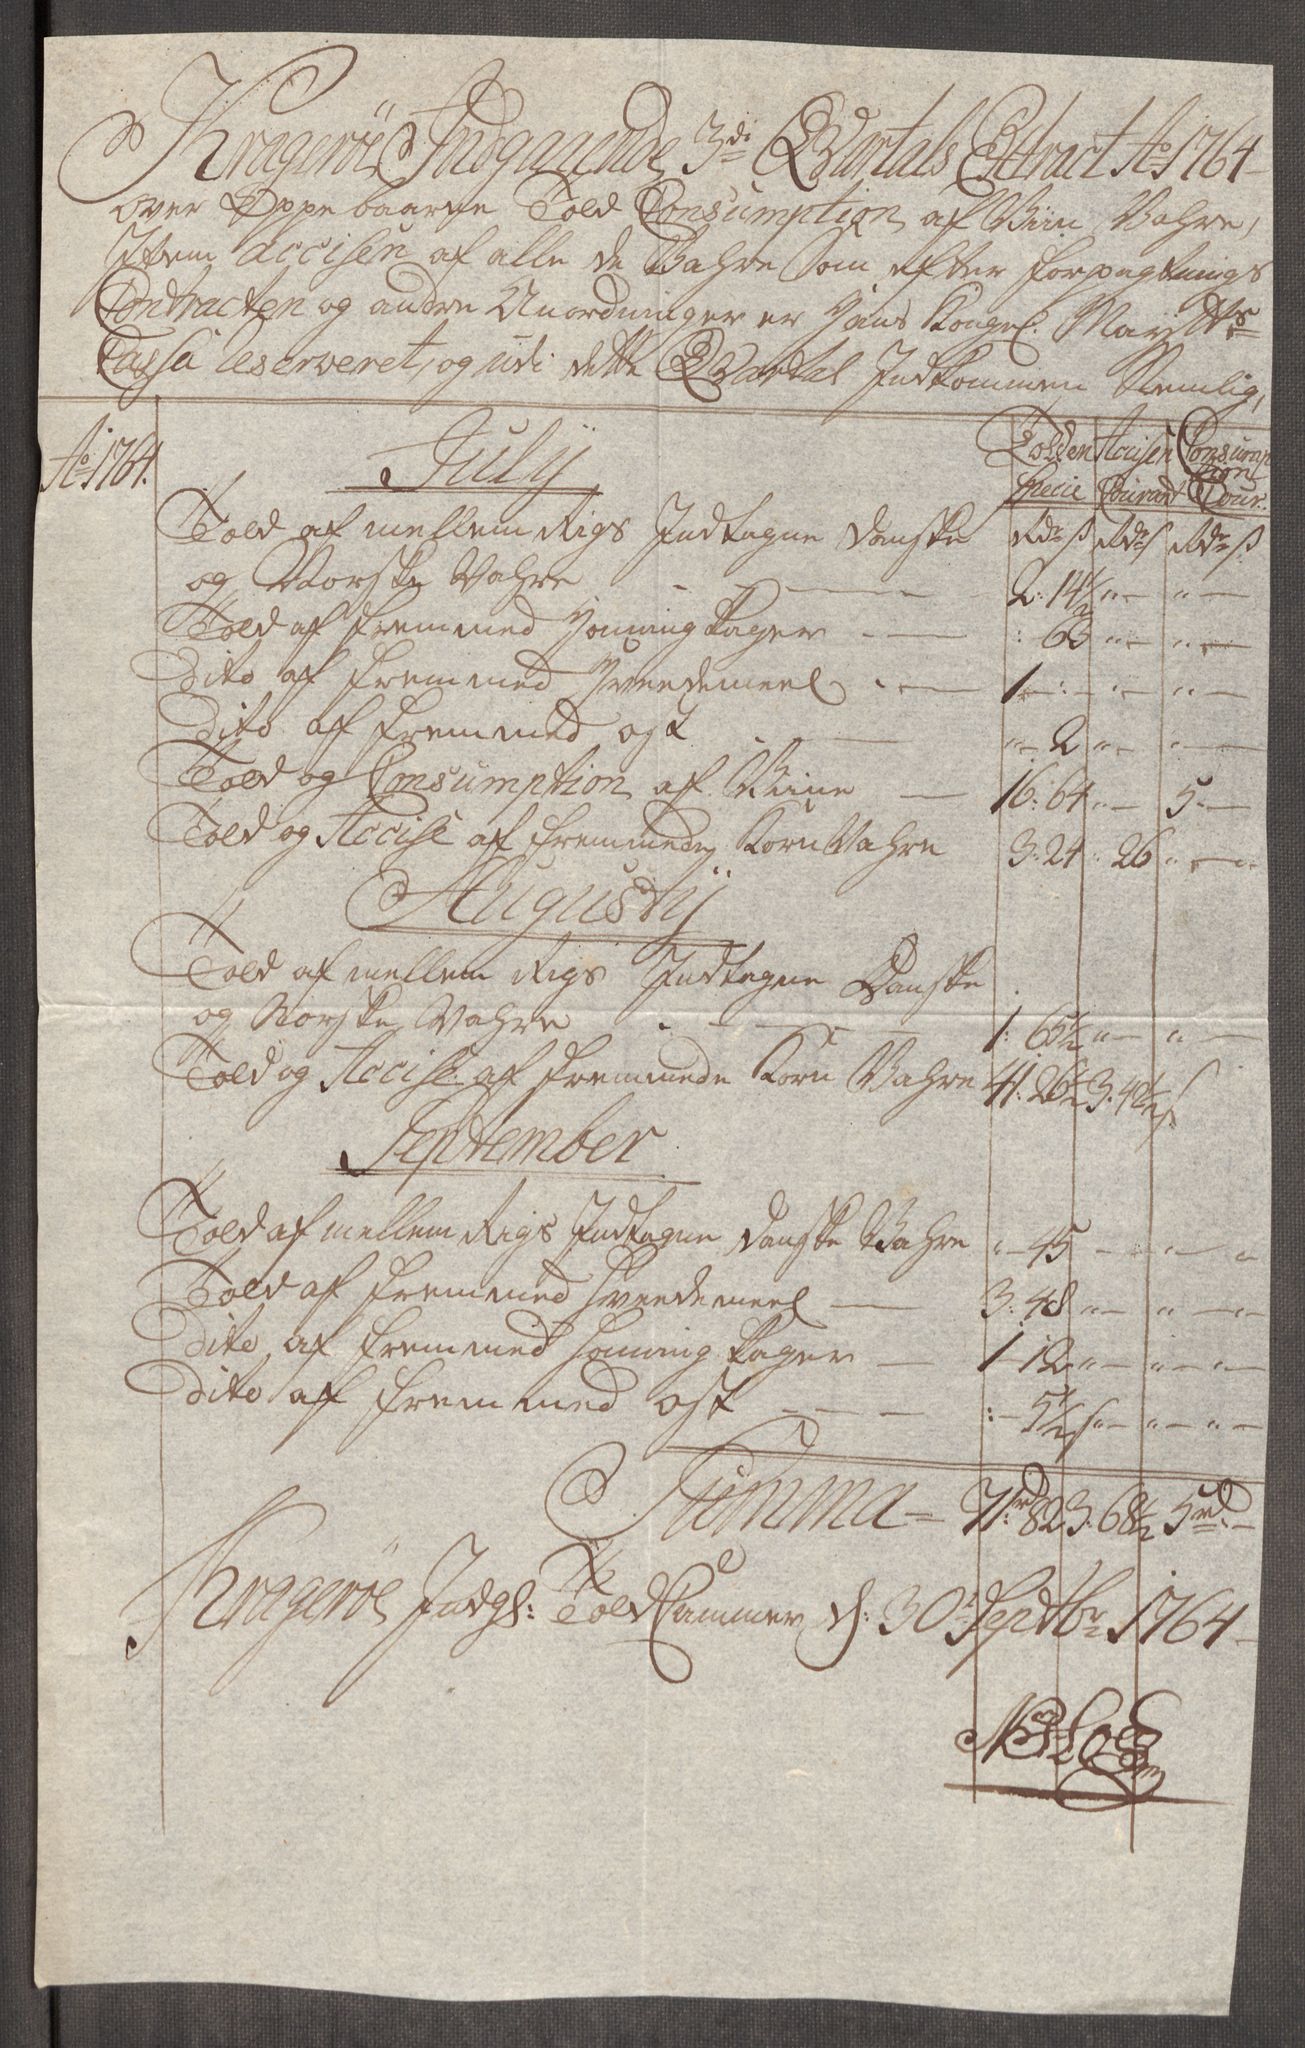 Kragerøe Indgaaende 3di Qvartals Extract Ao 1764
over Oppebaarne Told Consumption af Viin Vahre,
Item Accisen af alle de Vahre Som efter forpagtnings
Contracten og andre Anordninger er Hans Kongel. Mayts
Cassa reserveret, og udi dette Qvartal Indkommen Nemlig,
Ao 1764. July Tolden Accisen Consumption
Specie Courant Cour.
Told af mellem Rigs Indtagne Danske Rdr ß Rdr ß Rdr ß
og Norske Vahre - - 2: 14½ " - " -
Told af fremmed Honning Kager - : 63 " - " -
Dito af fremmed Hvedemeel - 1 - : - " - " -
Dito af fremmed ost - " - 2 " - " -
Told og Consumption af Viine - 16: 64 " - 5 - -
Told og Accise af fremmede Korn Vahre 3: 24 : 26 " - "
Augusty
Told af mellem Rigs Indtagne Danske
og Norske Vahre - - - 1: 65½ " - " -
Told og Accise af fremmede Korn Vahre 41: 26½ 3: 42½ ß
September
Told af mellem Rigs Indtagne Danske Vahre " - 45 - " - "
Told af fremmed Hvedemeel - 3: 48 " - " - "
Dito af fremmed Honning Kager - 1 - 12 " - " - " -
Dito af fremmed ost - - - : - 5½ ß " - " - " -
Summa = 71 rd 82 3: 68½ 5 rd -
Kragerøe Indg: Told Cammer d: 30t Septbr 1764